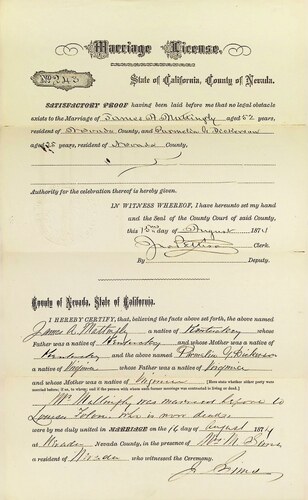 Marriage License.
No. 243
State of California, County of Nevada.
SATISFACTORY PROOF having been laid before me that no legal obstacle
exists to the Marriage of James A. Mattingly aged 52 years,
resident of Nevada County, and Permelia G. Dickerson
aged 35 years, resident of Nevada County:
Authority for the celebration thereof is hereby given.
IN WITNESS WHEREOF, I have hereunto set my hand
and the Seal of the County Court of said County,
this 15th day of August 1874
Clerk.
By Deputy.
County of Nevada, State of California.
I HEREBY CERTIFY, that, believing the facts above set forth, the above named
James A. Mattingly a native of Kentuckey whose
Father was a native of Kentuckey and whose Mother was a native of
Kentuckey and the above named Permelia G. Dickerson
a native of Virginia whose Father was a native of Virginia
and whose Mother was a native of Virginia
Mr Mattingly was married before to
Louisa who is now dead
were by me duly united in MARRIAGE on the 16 day of August 1874
at Nevada Nevada County, in the presence of Mrs M. Sims
a resident of Nevada who witnessed the Ceremony.
J. Sims